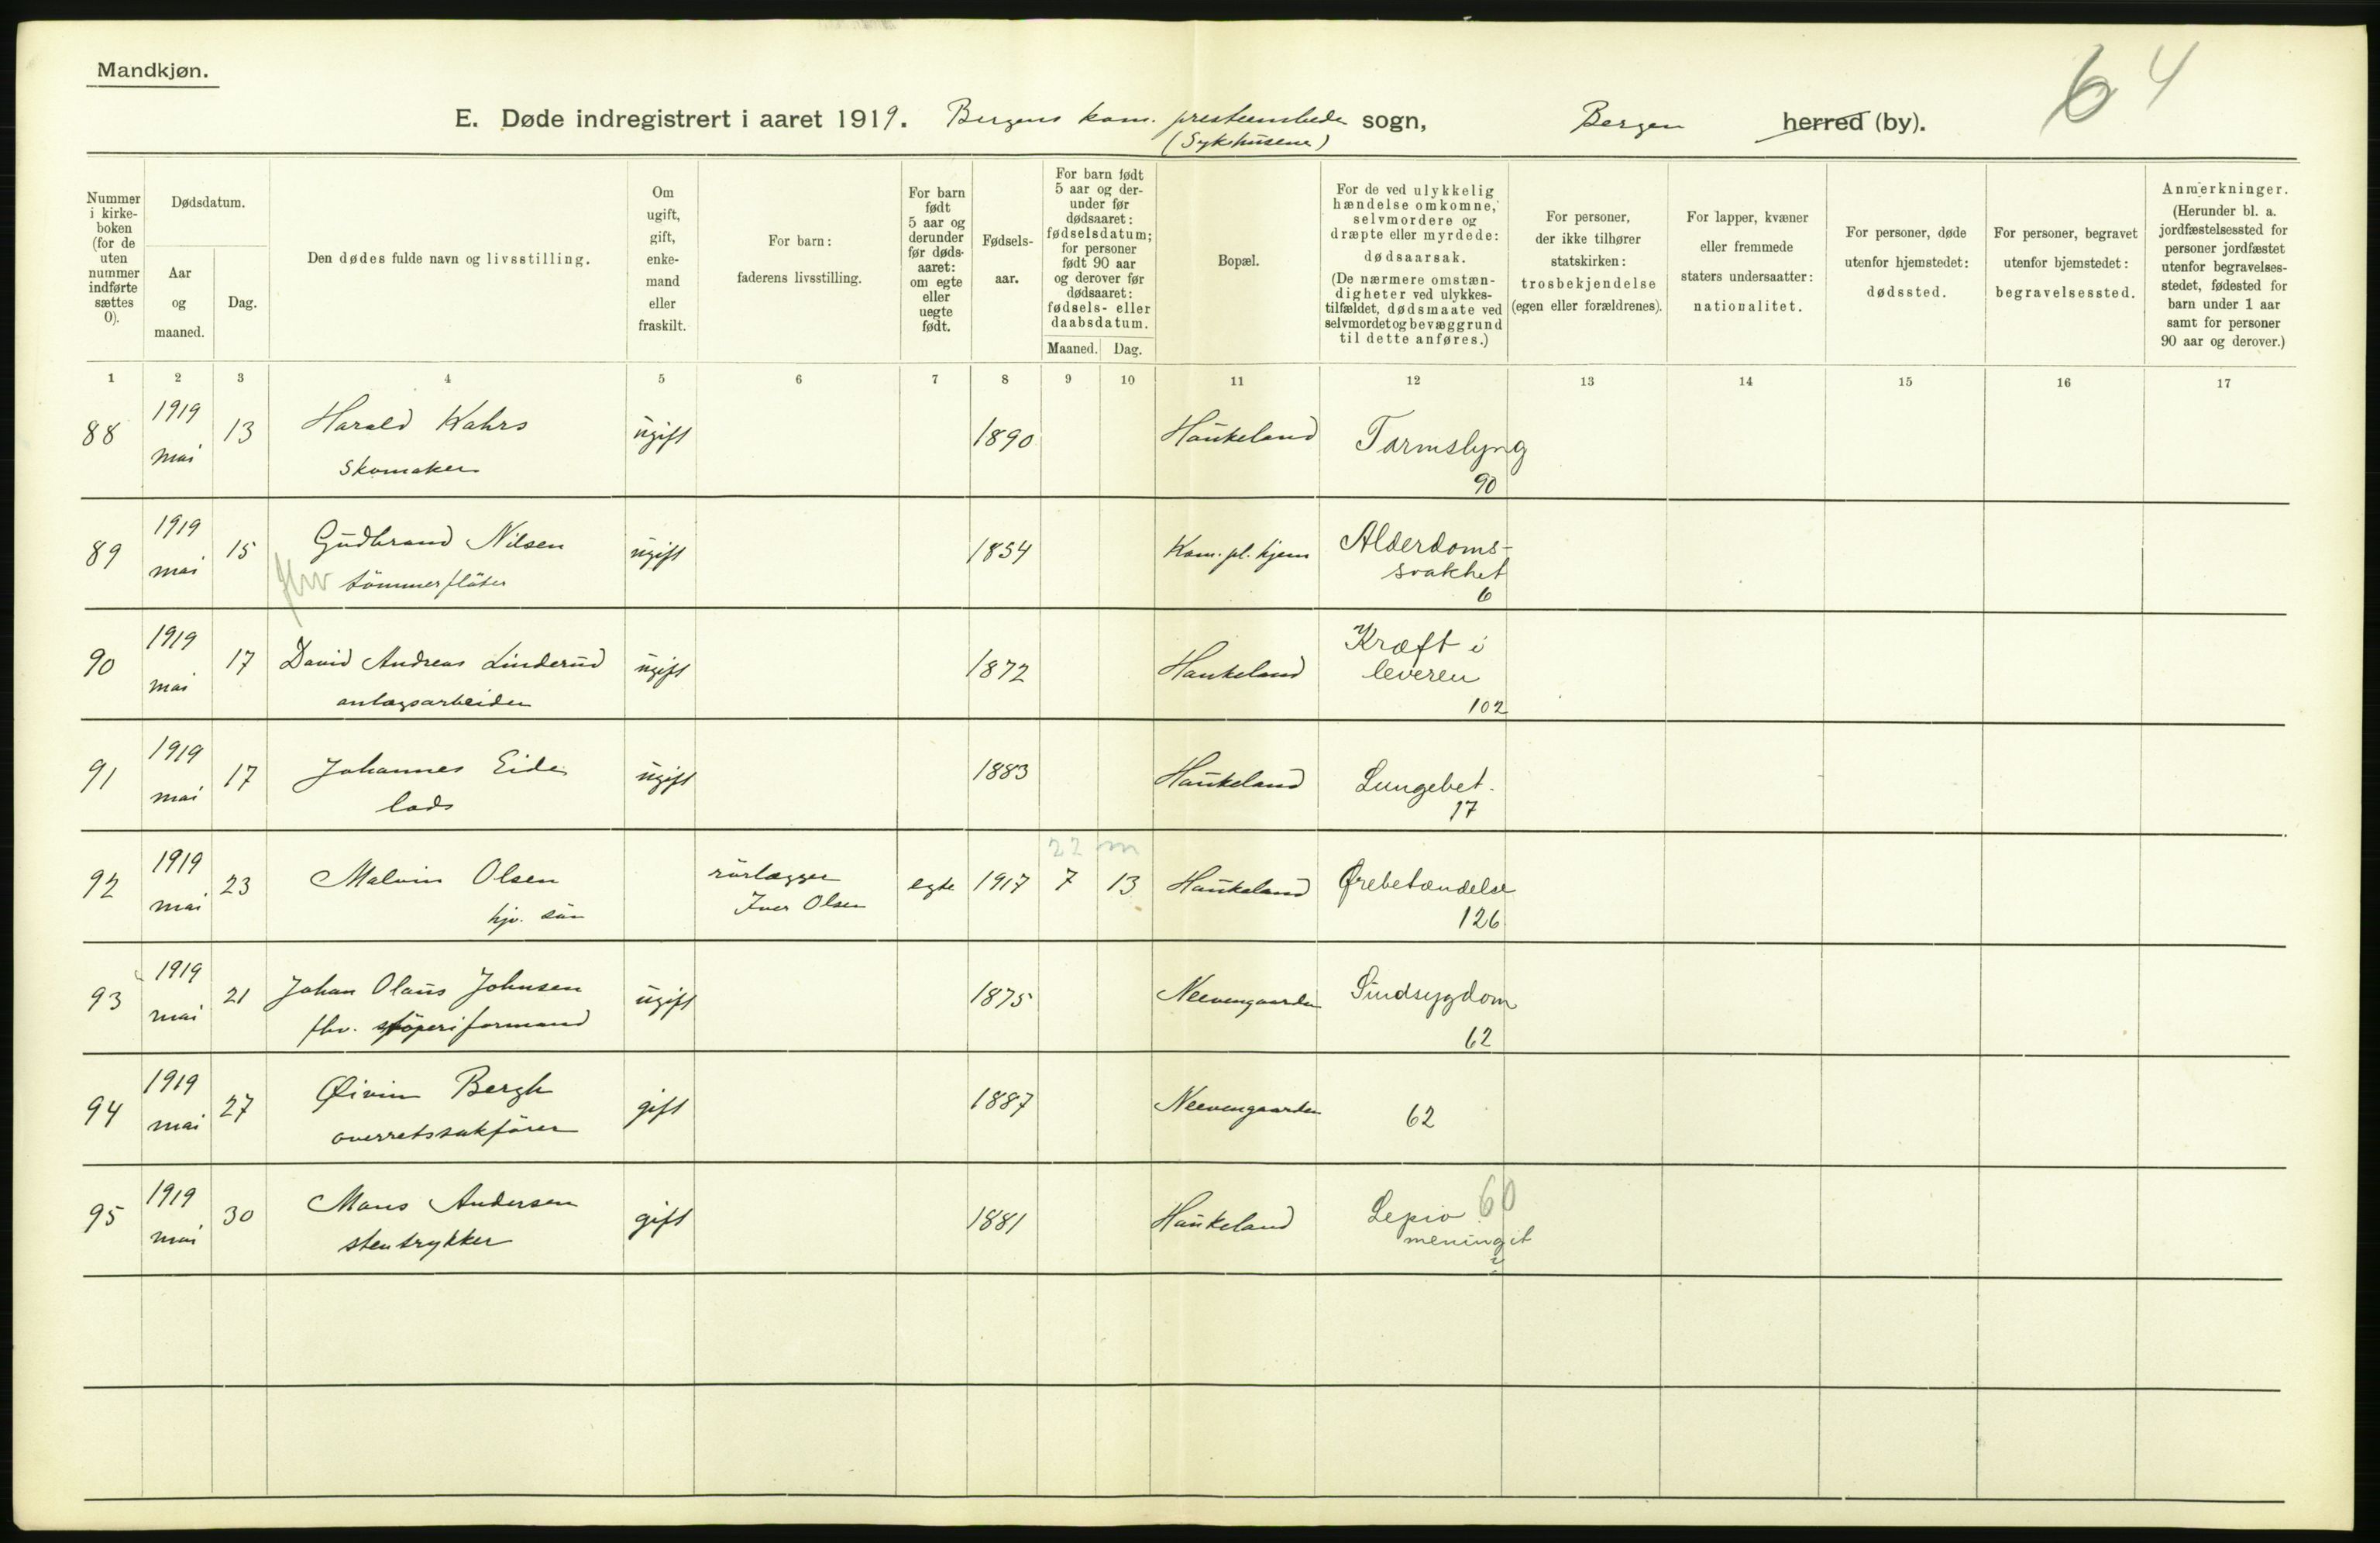 Mandkjøn.
64
E. Døde indregistrert i aaret 1919. Bergens kom. presteembede sogn, Bergen herred (by).
(Sykehusene)
Nummer i kirke-boken (for de uten nummer indførte sættes 0).
Dødsdatum.
Aar og maaned.
Dag.
Den dødes fulde navn og livsstilling.
Om ugift, gift, enke-mand eller fraskilt.
For barn: faderens livsstilling.
For barn født 5 aar og derunder før døds-aaret: om egte eller uegte født.
Fødsels-aar.
For barn født 5 aar og der-under før dødsaaret: fødselsdatum; for personer født 90 aar og derover før dødsaaret: fødsels- eller daabsdatum.
Maaned. Dag.
Bopæl.
For de ved ulykkelig hændelse omkomne, selvmordere og dræpte eller myrdede: dødsaarsak.
(De nærmere omstæn-digheter ved ulykkes-tilfældet, dødsmaate ved selvmordet og bevæggrund til dette anføres.)
For personer, der ikke tilhører statskirken: trosbekjendelse (egen eller forældrenes).
For lapper, kvæner eller fremmede staters undersaatter: nationalitet.
For personer, døde utenfor hjemstedet: dødssted.
For personer, begravet utenfor hjemstedet: begravelsessted.
Anmerkninger.
(Herunder bl. a. jordfæstelsessted for personer jordfæstet utenfor begravelses-stedet, fødested for barn under 1 aar samt for personer 90 aar og derover.)
1 2 3 4 5 6 7 8 9 10 11 12 13 14 15 16 17
88 1919 mai 13 Harald Kahrs ugift 1890 Haukeland Tarmslyng
skomaker 90
89 1919 mai 15 Gudbrand Nilsen ugift 1854 Kom. pl. hjem Alderdoms-
fhv tömmerfløter svakhet
6
90 1919 mai 17 David Andreas Linderud ugift 1872 Haukeland Kræft i
anlægsarbeider leveren
102
91 1919 mai 17 Johannes Eide ugift 1883 Haukeland Lungebet.
lods 17
22 m
92 1919 mai 23 Malvin Olsen rörlægger egte 1917 7 13 Haukeland Ørebetændelse
hjv. sön Iver Olsen 126
93 1919 mai 21 Johan Olaus Johnsen ugift 1875 Neevengaarden Sindsygdom
fhv. støperiformand 62
94 1919 mai 27 Øivin Bergh gift 1887 Neevengaarden 62
overretssakfører
95 1919 mai 30 Mons Andersen gift 1881 Haukeland Lepio 60
stentrykker meningit